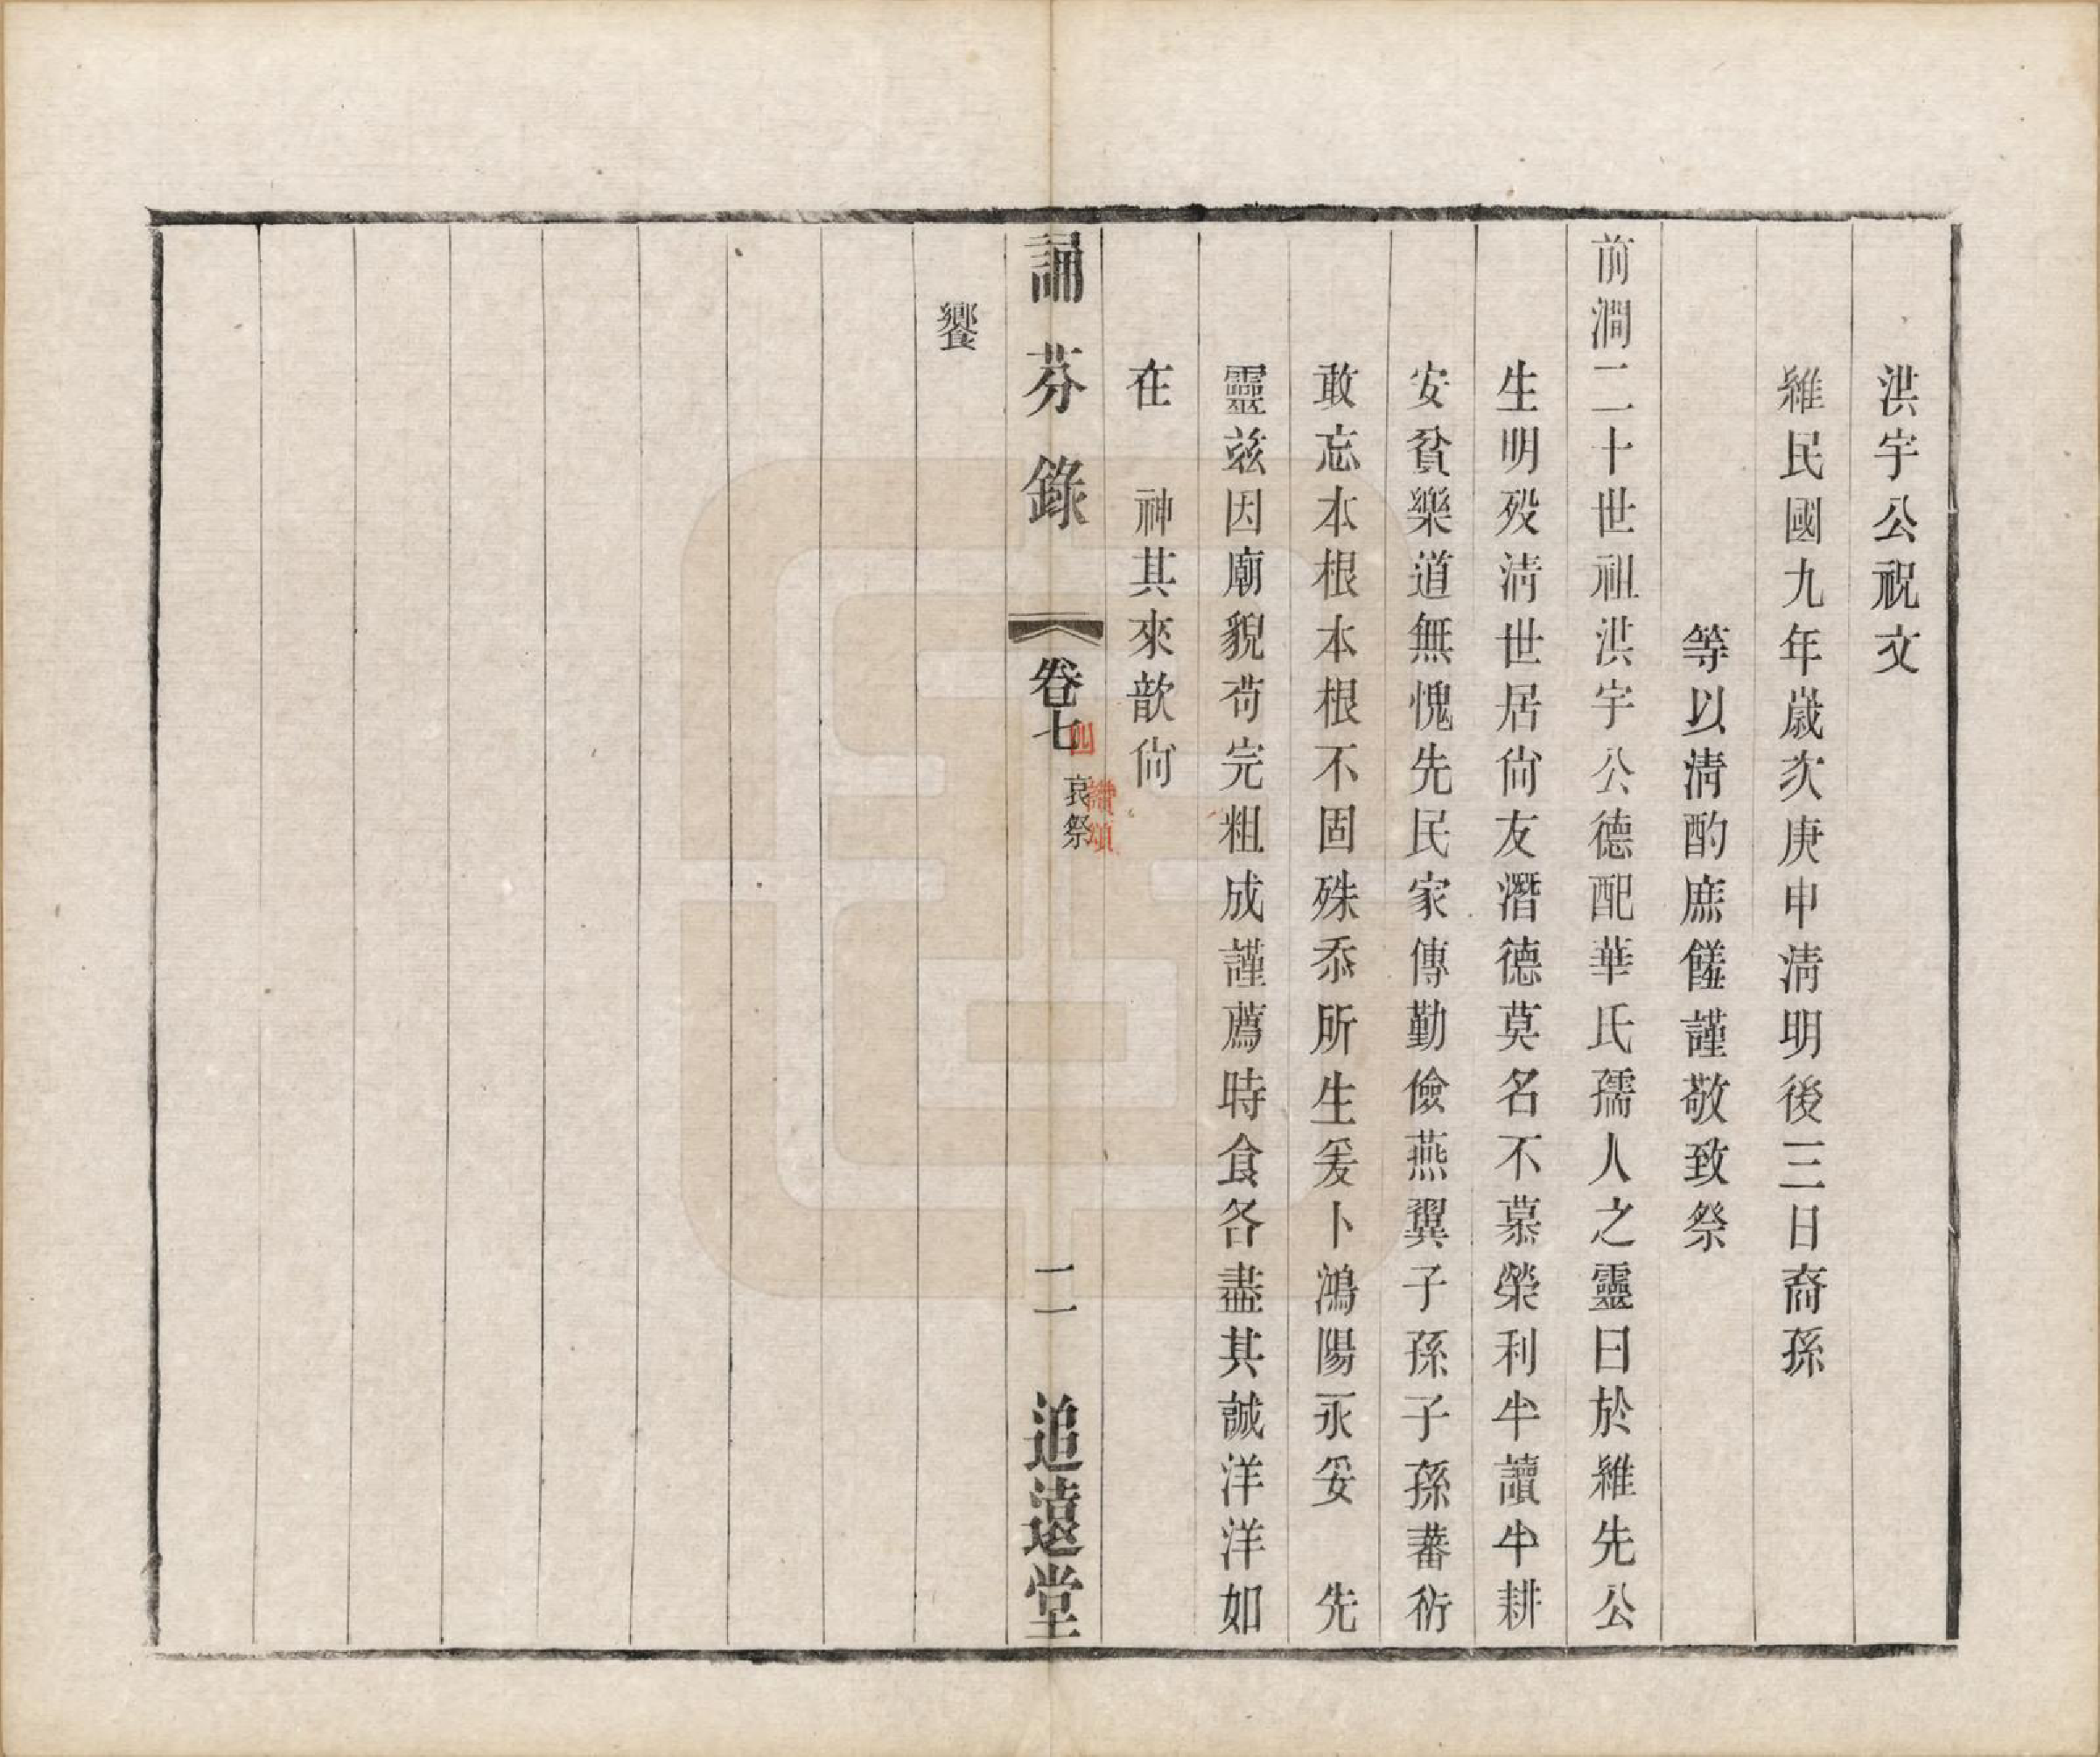 洪宇公祝文
維民國九年歲次庚申淸明後三日裔孫
等以淸酌庶饈謹敬致祭
前澗二十世祖洪宇公德配華氏孺人之靈曰於維先公
生明歿淸世居尙友潛德莫名不慕榮利半讀半耕
安貧樂道無愧先民家傳勤儉燕翼子孫子孫蕃衍
敢忘本根本根不固殊忝所生爰卜鴻陽永妥　先
靈兹因廟貌茍完粗成謹薦時食各盡其誠洋洋如
在　神其來歆尙
誦芬錄　卷七　哀祭　二　追遠堂
四
讚頌
饗